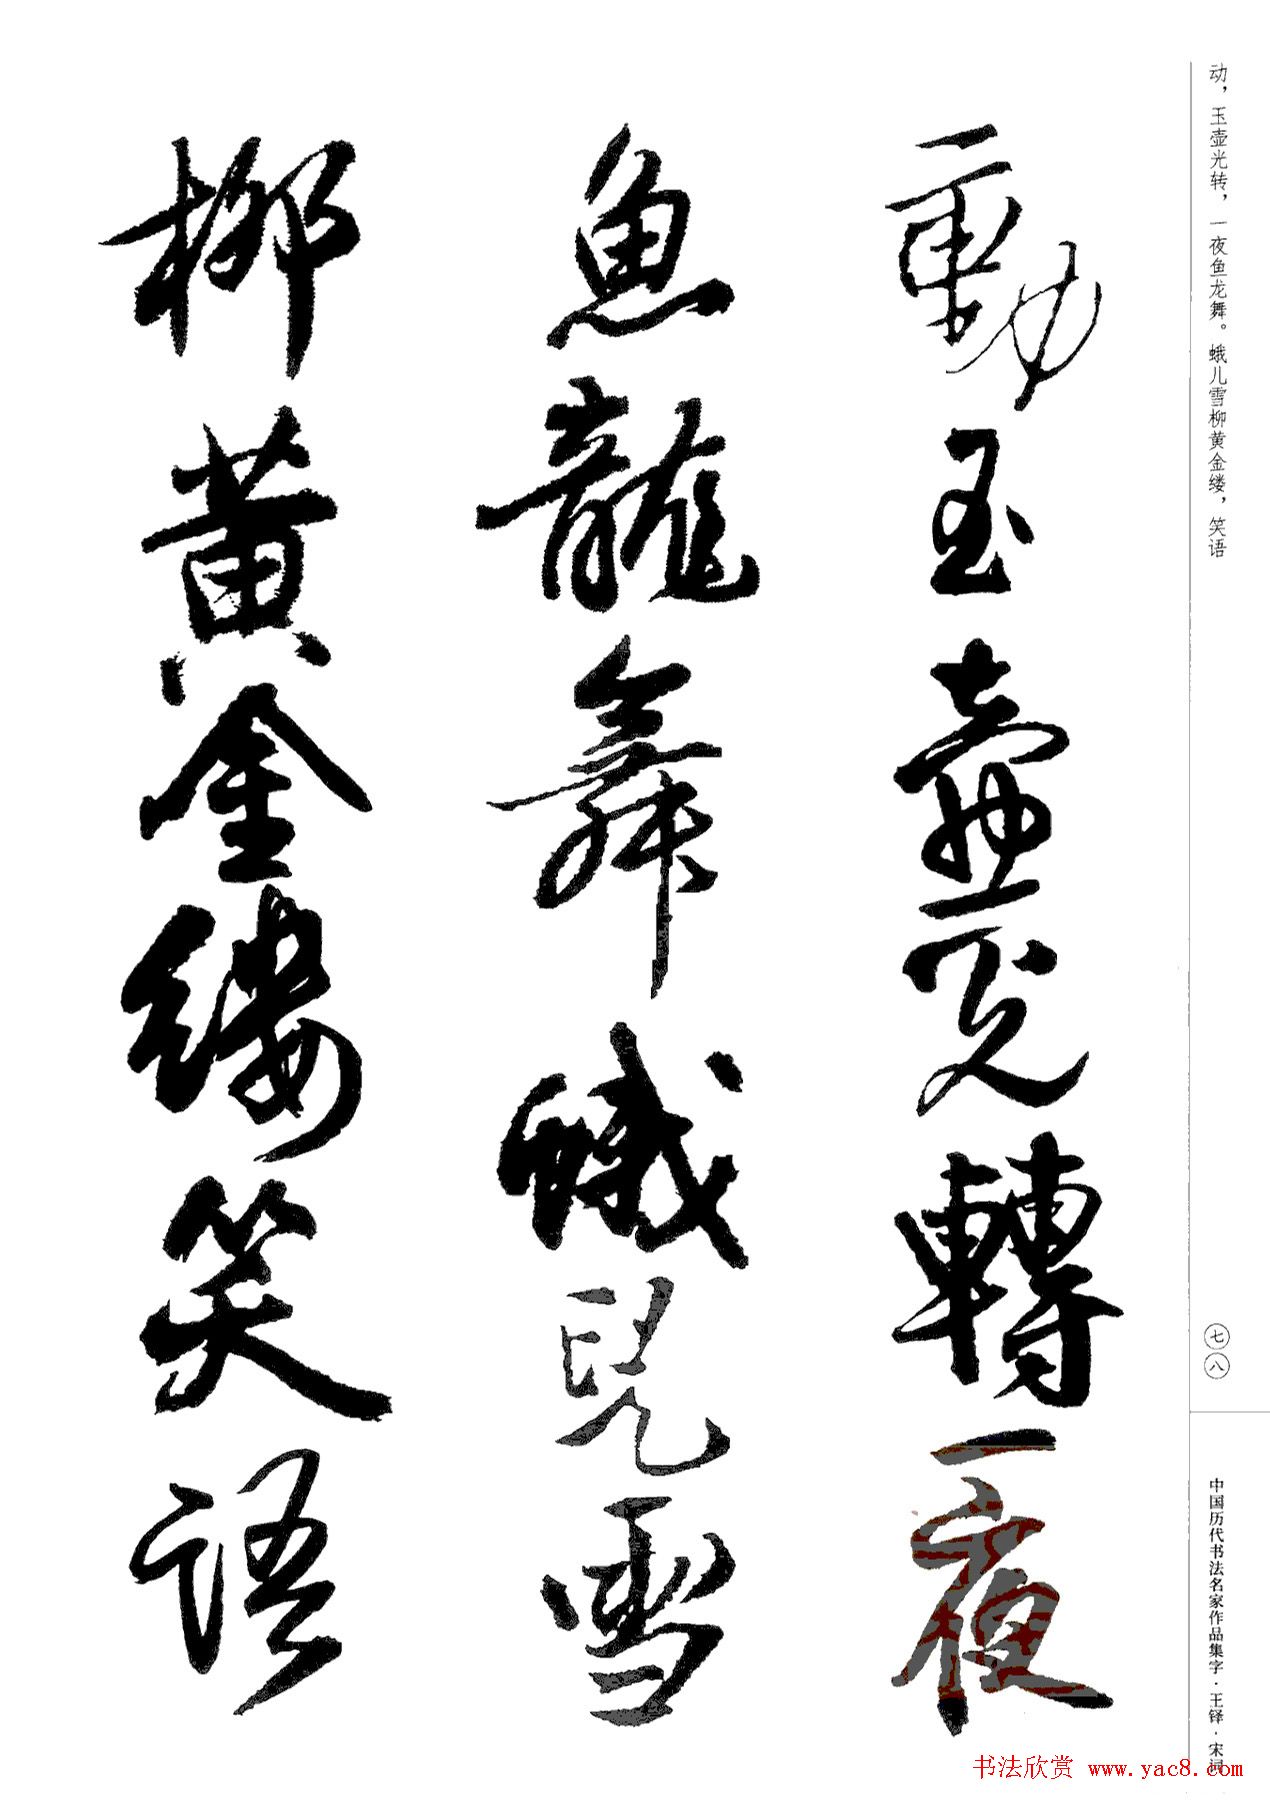 动，玉壶光转，一夜鱼龙舞。蛾儿雪柳黄金缕，笑语
七八
中国历代书法名家作品集字·王铎·宋词
動玉壺光轉一夜
魚龍舞蛾兒雪
柳黃金縷笑語
书法欣赏 www.yac8.com